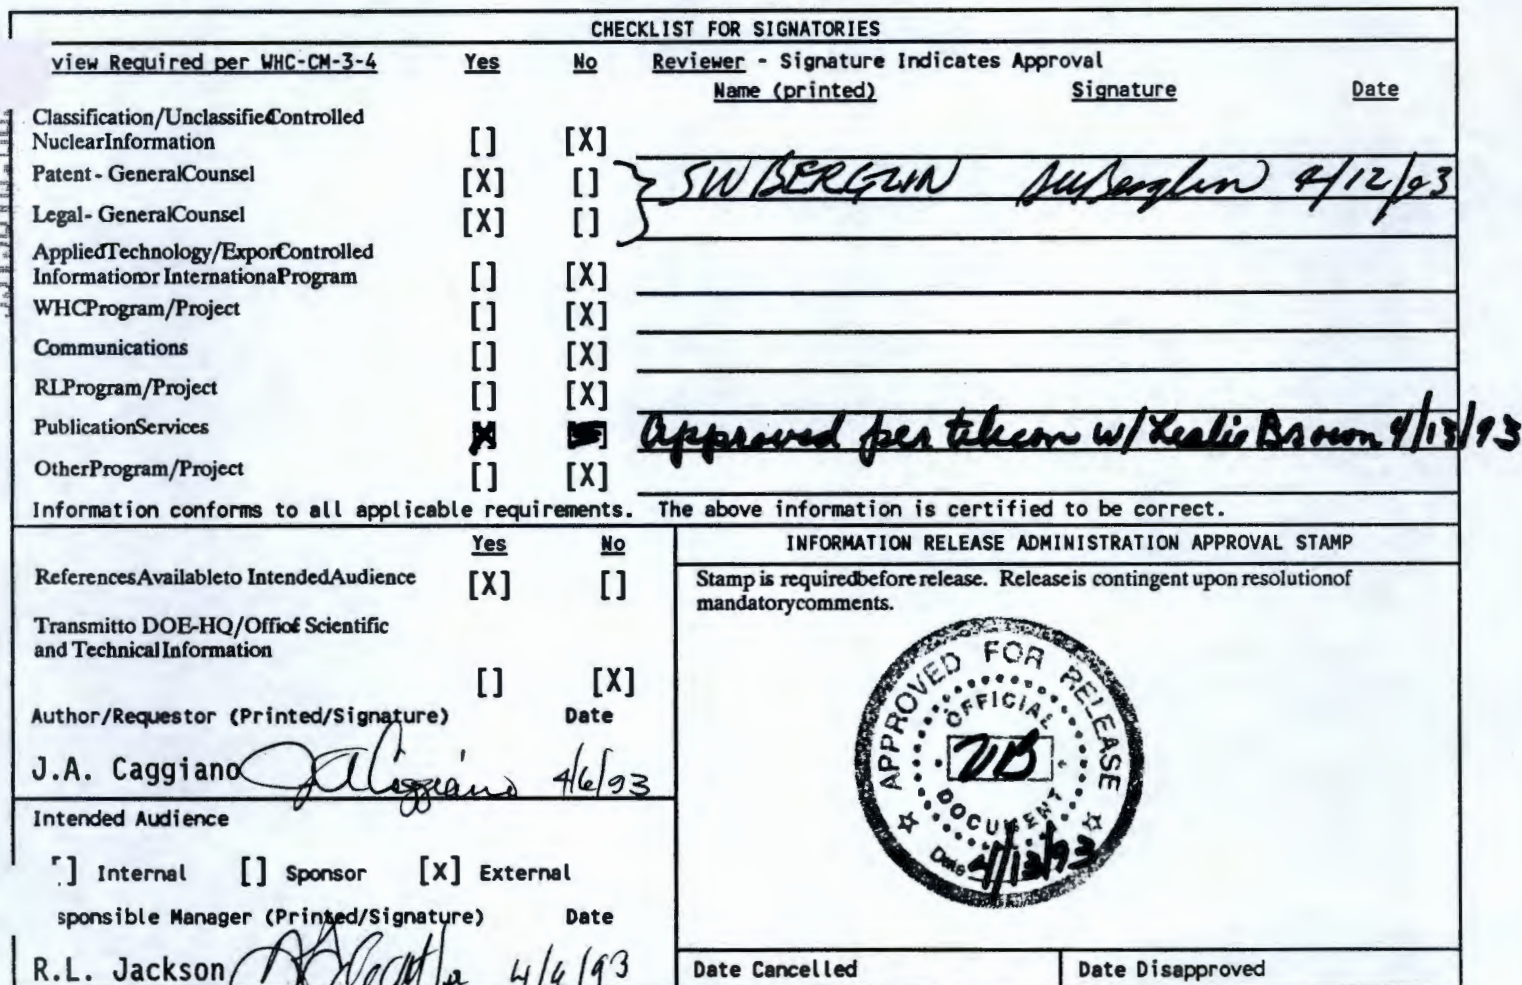 CHECKLIST FOR SIGNATORIES
view Required per WHC-CM-3-4 Yes No Reviewer - Signature Indicates Approval
Name (printed) Signature Date
Classification/UnclassifiedControlled
NuclearInformation [] [X]
Patent - GeneralCounsel [X] [] SW BERGLIN SWBerglin 4/12/93
Legal - GeneralCounsel [X] []
AppliedTechnology/ExportControlled
Informationor InternationalProgram [] [X]
WHCProgram/Project [] [X]
Communications [] [X]
RLProgram/Project [] [X]
PublicationServices [X] Approved per telecon w/ Leslie Brown 4/13/93
OtherProgram/Project [] [X]
Information conforms to all applicable requirements. The above information is certified to be correct.
Yes No
ReferencesAvailableto IntendedAudience [X] []
Transmitto DOE-HQ/Officeof Scientific
and TechnicalInformation
[] [X]
Author/Requestor (Printed/Signature) Date
J.A. Caggiano JA Caggiano 4/6/93
Intended Audience
[] Internal [] Sponsor [X] External
sponsible Manager (Printed/Signature) Date
R.L. Jackson 4/6/93
INFORMATION RELEASE ADMINISTRATION APPROVAL STAMP
Stamp is requiredbefore release. Releaseis contingent upon resolutionof
mandatorycomments.
APPROVED FOR RELEASE
OFFICIAL
DOCUMENT
Date 4/13/93
Date Cancelled Date Disapproved